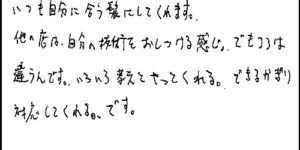 いつも自分に合う髪にしてくれます。
他の店は、自分の技術をおしつける感じ。でもココは
違うんです。いろいろ考えてやってくれる。できるかぎり
対応してくれる。です。